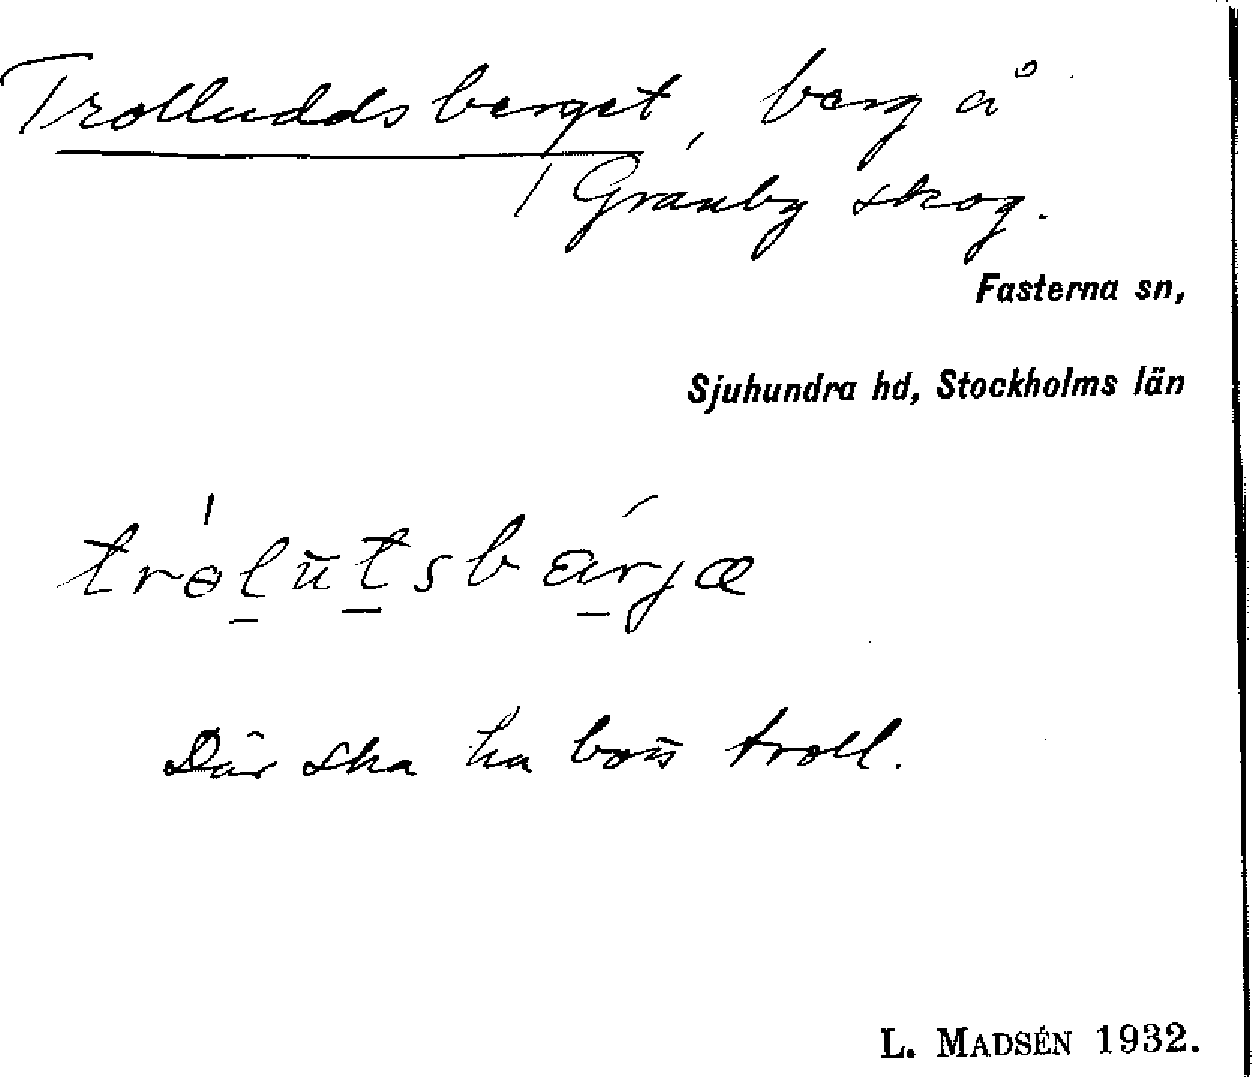 Trolluddsberget, berg å
Granby skog.
Fasterna sn,
Sjuhundra hd, Stockholms län
Där ska ha bott troll.
L. MADSÉN 1932.